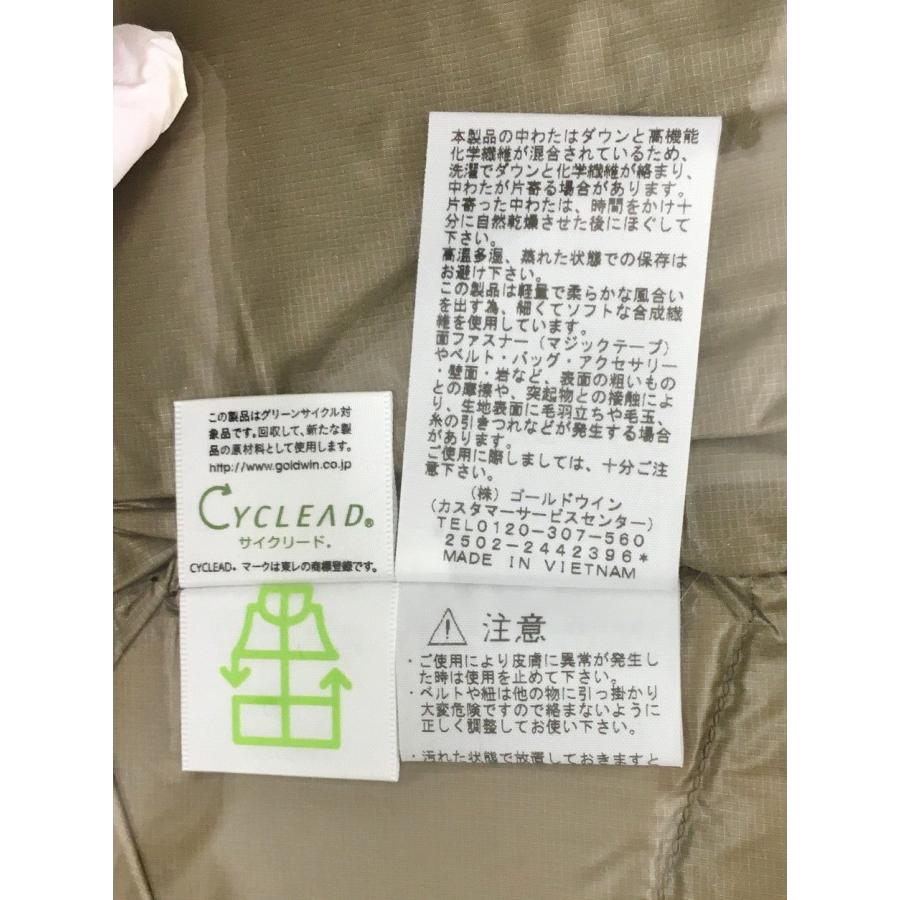 本製品の中わたはダウンと高機能
化学繊維が混合されているため、
洗濯でダウンと化学繊維が絡まり、
中わたが片寄る場合があります。
片寄った中わたは、時間をかけ十
分に自然乾燥させた後にほぐして
下さい。
高温多湿、蒸れた状態での保存は
お避け下さい。
この製品は軽量で柔らかな風合い
を出す為、細くてソフトな合成繊
維を使用しています。
面ファスナー(マジックテープ)
やベルト・バッグ・アクセサリー
・壁面・岩など、表面の粗いもの
との摩擦や、突起物との接触によ
り、生地表面に毛羽立ちや毛玉、
糸の引きつれなどが発生する場合
があります。
ご使用に際しましては、十分ご注
意下さい。
(株)ゴールドウイン
(カスタマーサービスセンター)
TEL0120-307-560
2502-2442396*
MADE IN VIETNAM
この製品はグリーンサイクル対
象品です。回収して、新たな製
品の原材料として使用します。
http://www.goldwin.co.jp
CYCLEAD®
サイクリード®
CYCLEAD® マークは東レの商標登録です。
注意
・ご使用により皮膚に異常が発生し
た時は使用を止めて下さい。
・ベルトや紐は他の物に引っ掛かり
大変危険ですので絡まないように
正しく調整してお使い下さい。
・汚れた状態で放置しておきますと